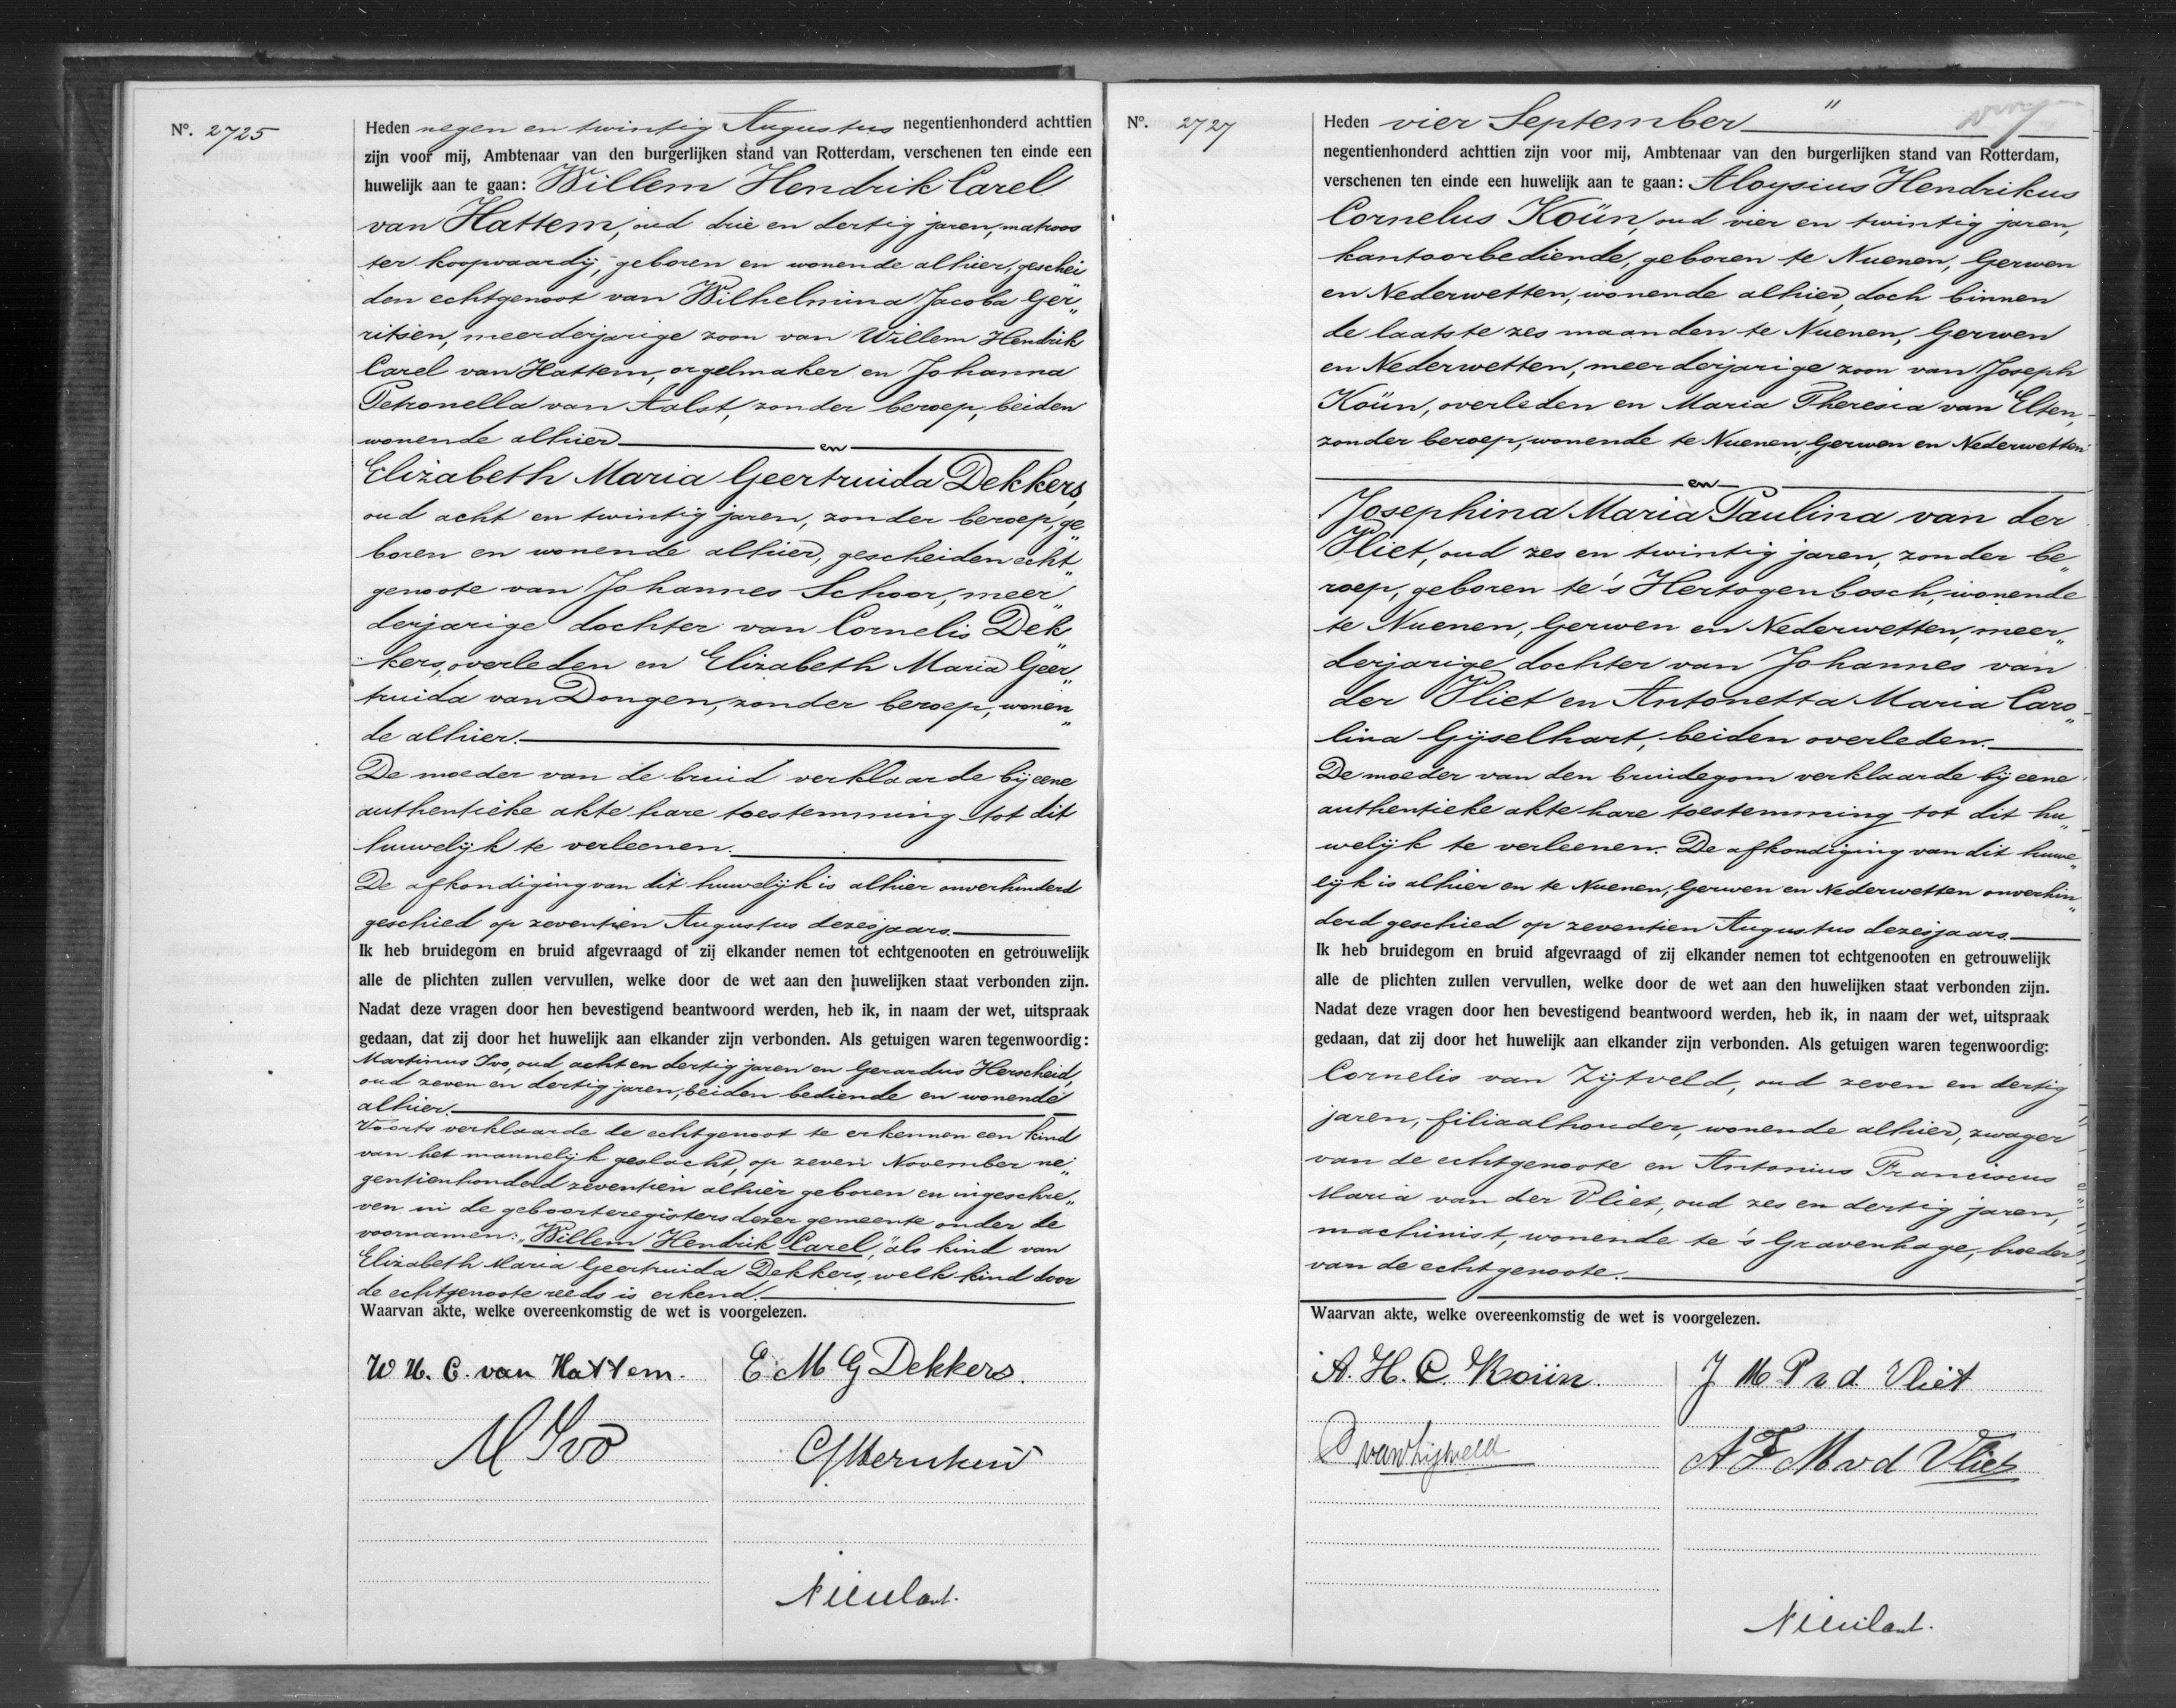 Nº. 2725
Heden negen en twintig Augustus negentienhonderd achttien
zijn voor mij, Ambtenaar van den burgerlijken stand van Rotterdam, verschenen ten einde een
huwelijk aan te gaan: Willem Hendrik Carel
van Hattem, oud drie en dertig jaren, matroos
ter koopvaardij, geboren en wonende alhier, geschei„
den echtgenoot van Wilhelmina Jacoba Ger„
ritsen, meerderjarige zoon van Willem Hendrik
Carel van Hattem, orgelmaker en Johanna
Petronella van Aalst, zonder beroep, beiden
wonende alhier
en
Elizabeth Maria Geertruida Dekkers,
oud acht en twintig jaren, zonder beroep, ge„
boren en wonende alhier, gescheiden echt„
genoote van Johannes Schoor, meer„
derjarige dochter van Cornelis Dek„
kers, overleden en Elizabeth Maria Geer„
truida van Dongen, zonder beroep, wonen„
de alhier.
De moeder van de bruid verklaarde bij eene
authentieke akte hare toestemming tot dit
huwelijk te verleenen.
De afkondiging van dit huwelijk is alhier onverhinderd
geschied op zeventien Augustus dezes jaars.
Ik heb bruidegom en bruid afgevraagd of zij elkander nemen tot echtgenooten en getrouwelijk
alle de plichten zullen vervullen, welke door de wet aan den huwelijken staat verbonden zijn.
Nadat deze vragen door hen bevestigend beantwoord werden, heb ik, in naam der wet, uitspraak
gedaan, dat zij door het huwelijk aan elkander zijn verbonden. Als getuigen waren tegenwoordig:
Martinus Ivo, oud acht en dertig jaren en Gerardus Herscheid,
oud zeven en dertig jaren, beiden bediende en wonende
alhier.
Voorts verklaarde de echtgenoot te erkennen een kind
van het mannelijk geslacht, op zeven November ne„
gentienhonderd zeventien alhier geboren en ingeschre„
ven in de geboorteregisters dezer gemeente onder de
voornamen: „Willem Hendrik Carel," als kind van
Elizabeth Maria Geertruida Dekkers, welk kind door
de echtgenoote reeds is erkend.
Waarvan akte, welke overeenkomstig de wet is voorgelezen.
W H. C. van Hattem. E M G Dekkers.
M Ivo
Nº. 2727
Heden vier September „
negentienhonderd achttien zijn voor mij, Ambtenaar van den burgerlijken stand van Rotterdam,
verschenen ten einde een huwelijk aan te gaan: Aloysius Hendrikus
Cornelus Koün, oud vier en twintig jaren,
kantoorbediende, geboren te Nuenen, Gerwen
en Nederwetten, wonende alhier, doch binnen
de laatste zes maanden te Nuenen, Gerwen
en Nederwetten, meerderjarige zoon van Joseph
Koün, overleden en Maria Theresia van Elten,
zonder beroep, wonende te Nuenen, Gerwen en Nederwetten
en
Josephina Maria Paulina van der
Vliet, oud zes en twintig jaren, zonder be„
roep, geboren te 's Hertogenbosch, wonende
te Nuenen, Gerwen en Nederwetten, meer„
derjarige dochter van Johannes van
der Vliet en Antonetta Maria Caro„
lina Gijselhart, beiden overleden.
De moeder van den bruidegom verklaarde bij eene
authentieke akte hare toestemming tot dit hu„
welijk te verleenen. De afkondiging van dit huwe„
lijk is alhier en te Nuenen, Gerwen en Nederwetten onverhin„
derd geschied op zeventien Augustus dezes jaars.
Ik heb bruidegom en bruid afgevraagd of zij elkander nemen tot echtgenooten en getrouwelijk
alle de plichten zullen vervullen, welke door de wet aan den huwelijken staat verbonden zijn.
Nadat deze vragen door hen bevestigend beantwoord werden, heb ik, in naam der wet, uitspraak
gedaan, dat zij door het huwelijk aan elkander zijn verbonden. Als getuigen waren tegenwoordig:
Cornelis van Zijtveld, oud zeven en dertig
jaren, filiaalhouder, wonende alhier, zwager
van de echtgenoote en Antonius Franciscus
Maria van der Vliet, oud zes en dertig jaren,
machinist, wonende te 's Gravenhage, broeder
van de echtgenoote.
Waarvan akte, welke overeenkomstig de wet is voorgelezen.
A. H. C. Koün. J M P v d Vliet
C van Zijtveld A F M v d Vliet